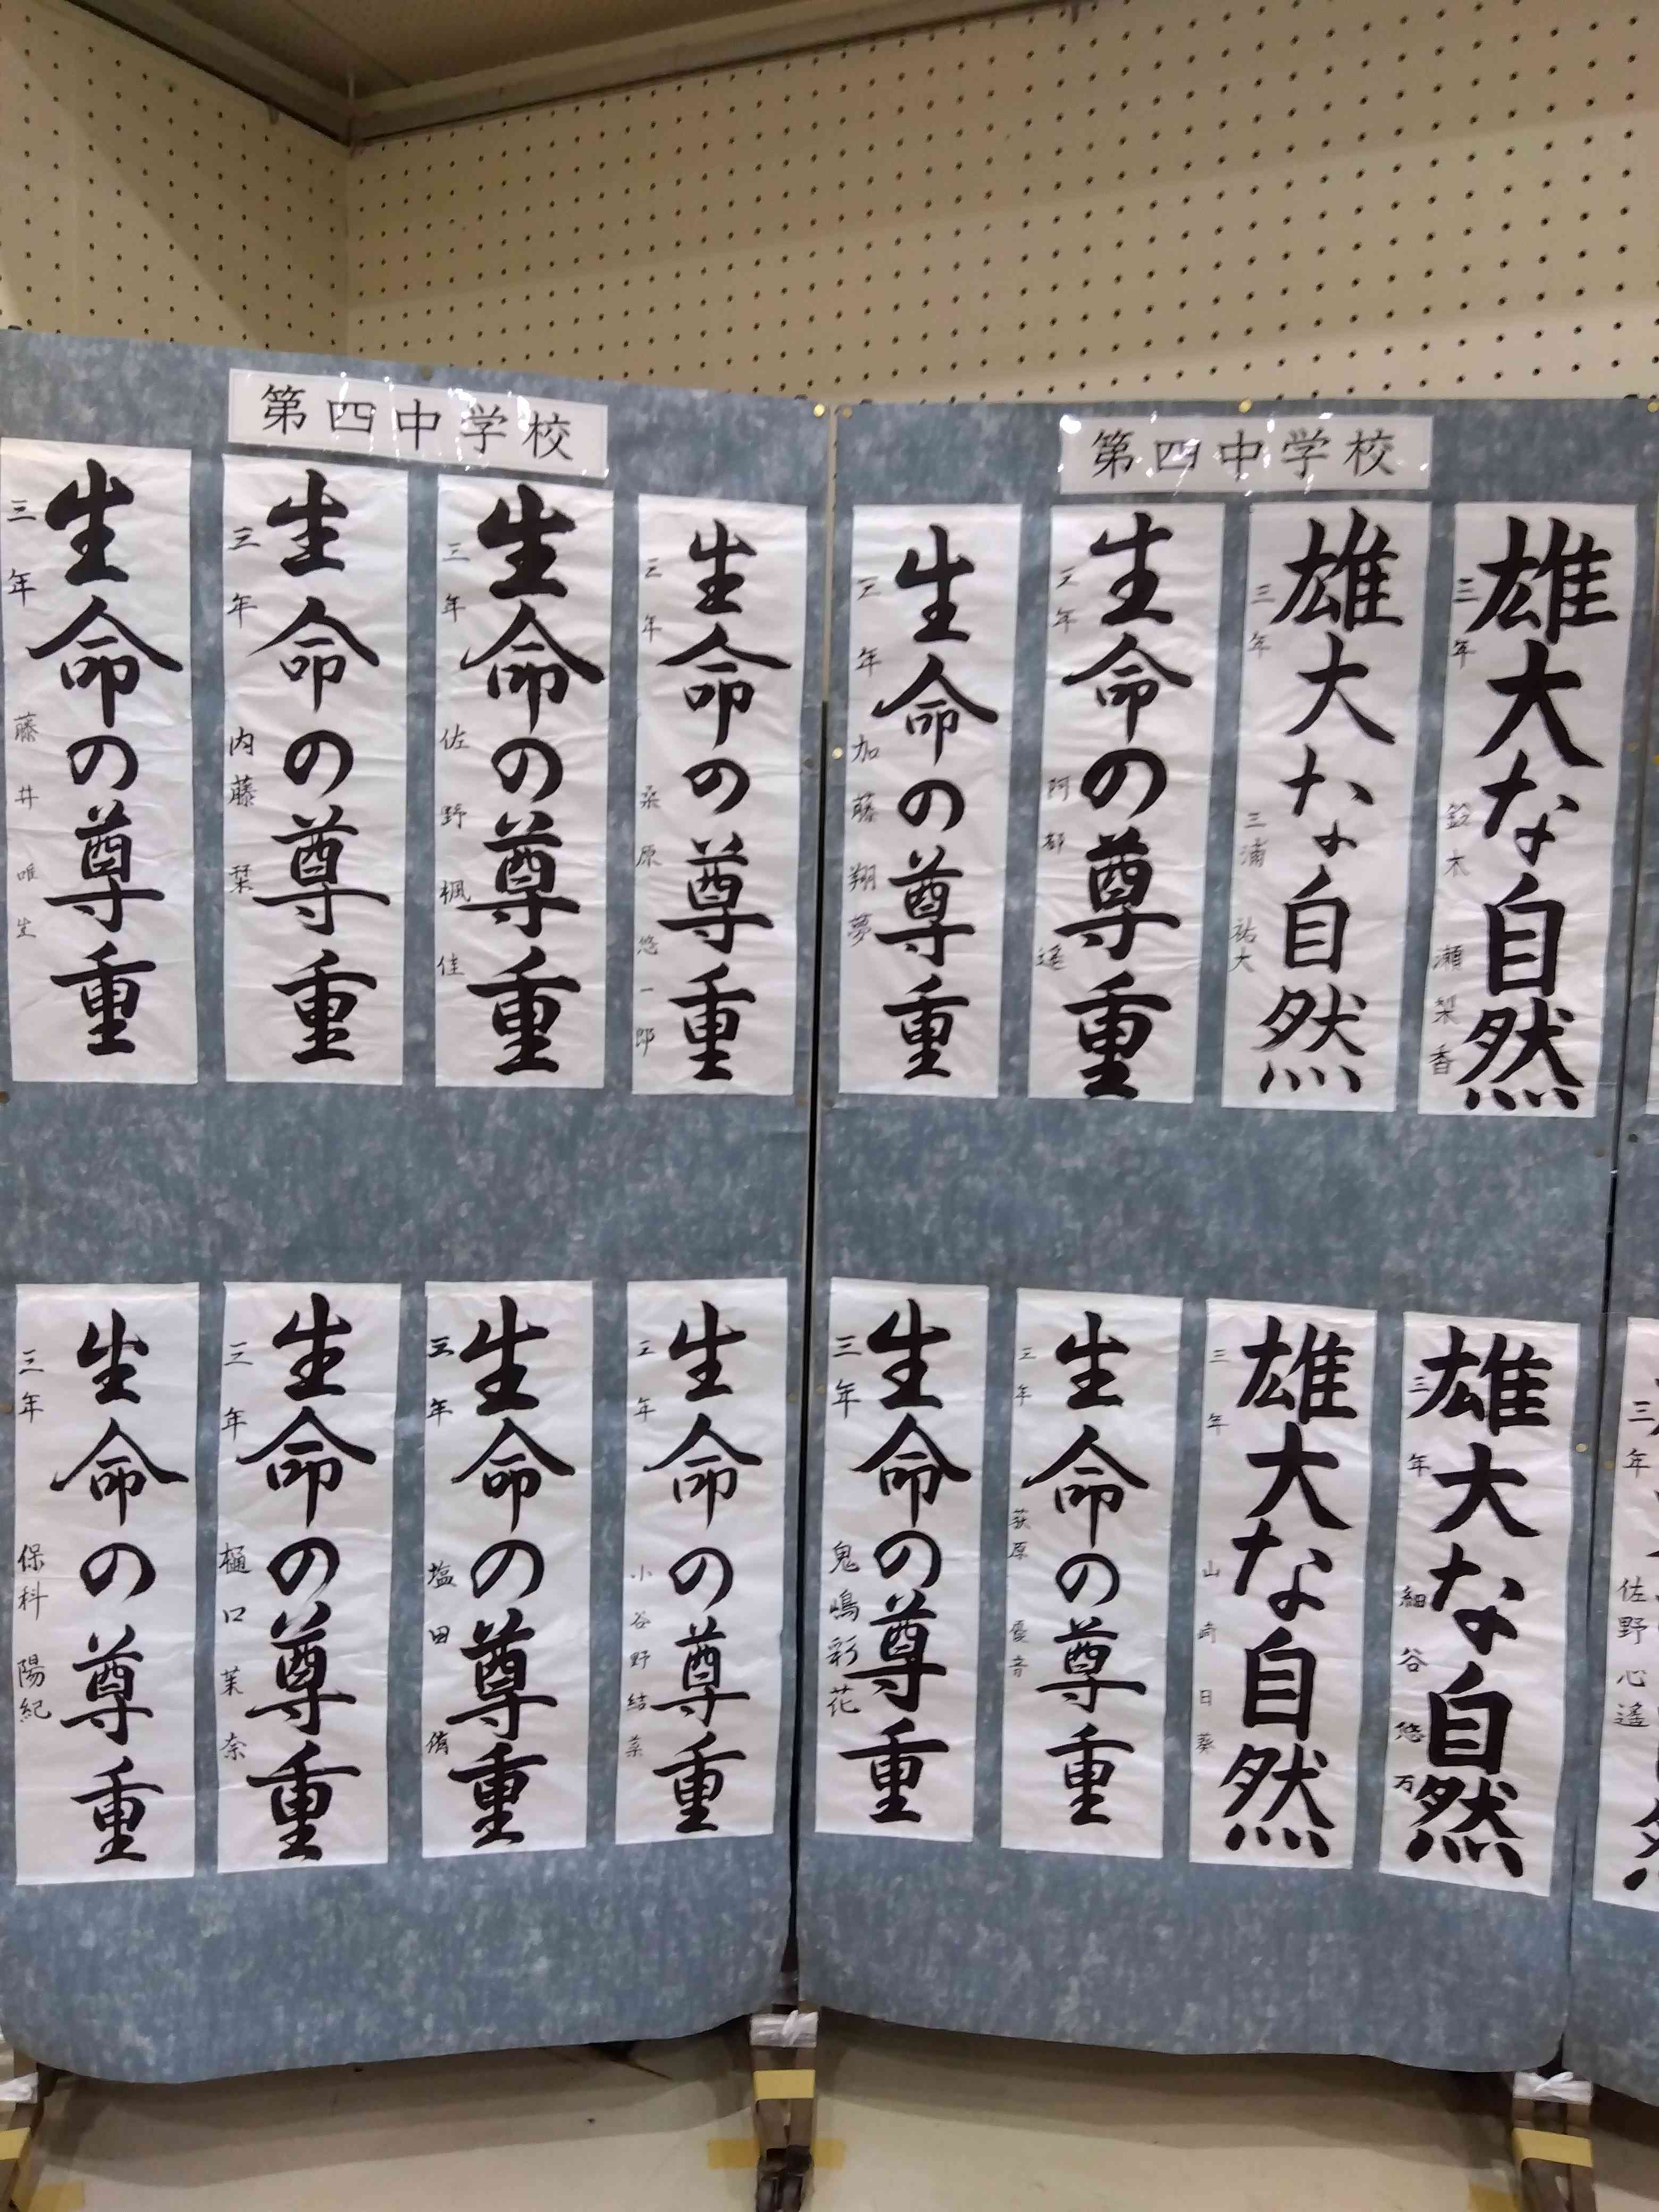 第四中学校
生命の尊重
三年 藤井 唯生
生命の尊重
三年 内藤 栞
生命の尊重
三年 佐野 楓佳
生命の尊重
三年 桑原 悠一郎
生命の尊重
三年 保科 陽紀
生命の尊重
三年 樋口 茉奈
生命の尊重
三年 塩田
生命の尊重
三年 小谷野 結菜
第四中学校
生命の尊重
三年 加藤 翔夢
生命の尊重
三年 阿部 遥
雄大な自然
三年 三浦 祐大
雄大な自然
三年 鈴木 瀬梨香
生命の尊重
三年 鬼嶋 彩花
生命の尊重
三年 荻原 優音
雄大な自然
三年 山崎 日葵
雄大な自然
三年 細谷 悠万
三年 佐野 心遙